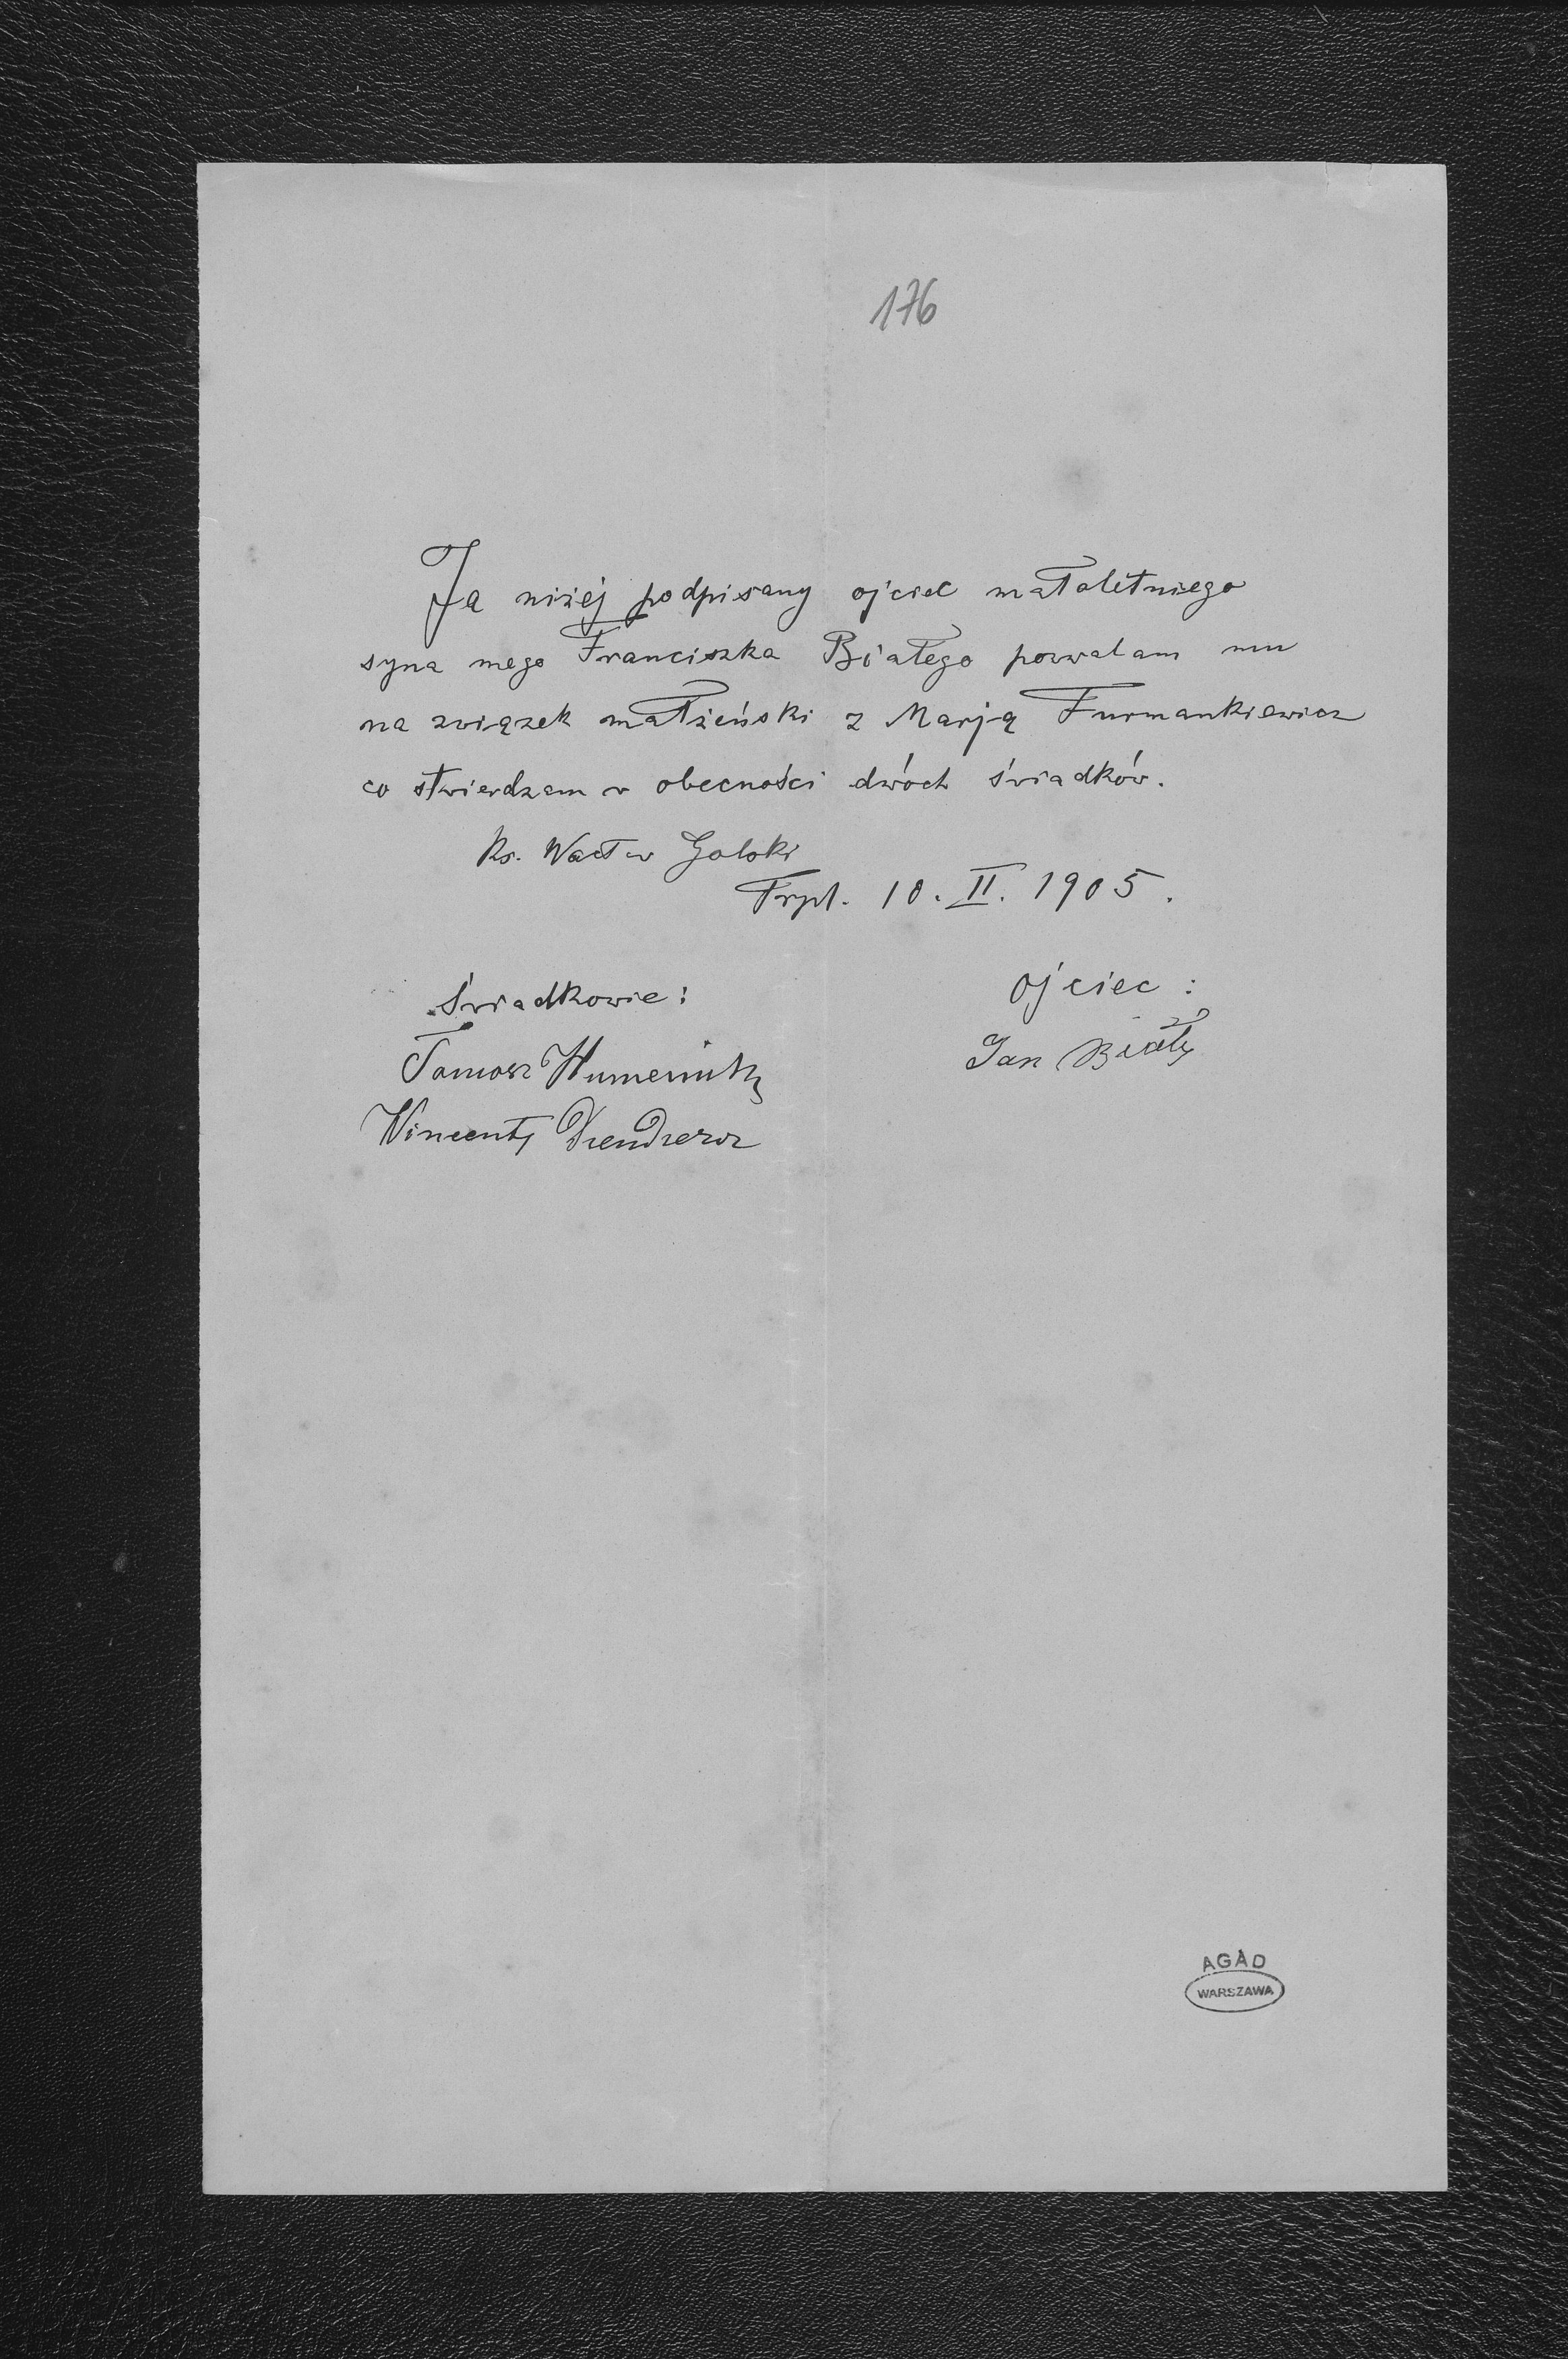 176
Ja niżej podpisany ojciec małoletniego
syna mego Franciszka Białego pozwalam mu
na związek małżeński z Marją Furmankiewicz
co stwierdzam w obecności dwóch świadków.
Ks. Wacław
Trpl. 10. II. 1905.
Świadkowie: Ojciec:
Tomasz Jan Biały
Wincenty
AGAD
WARSZAWA